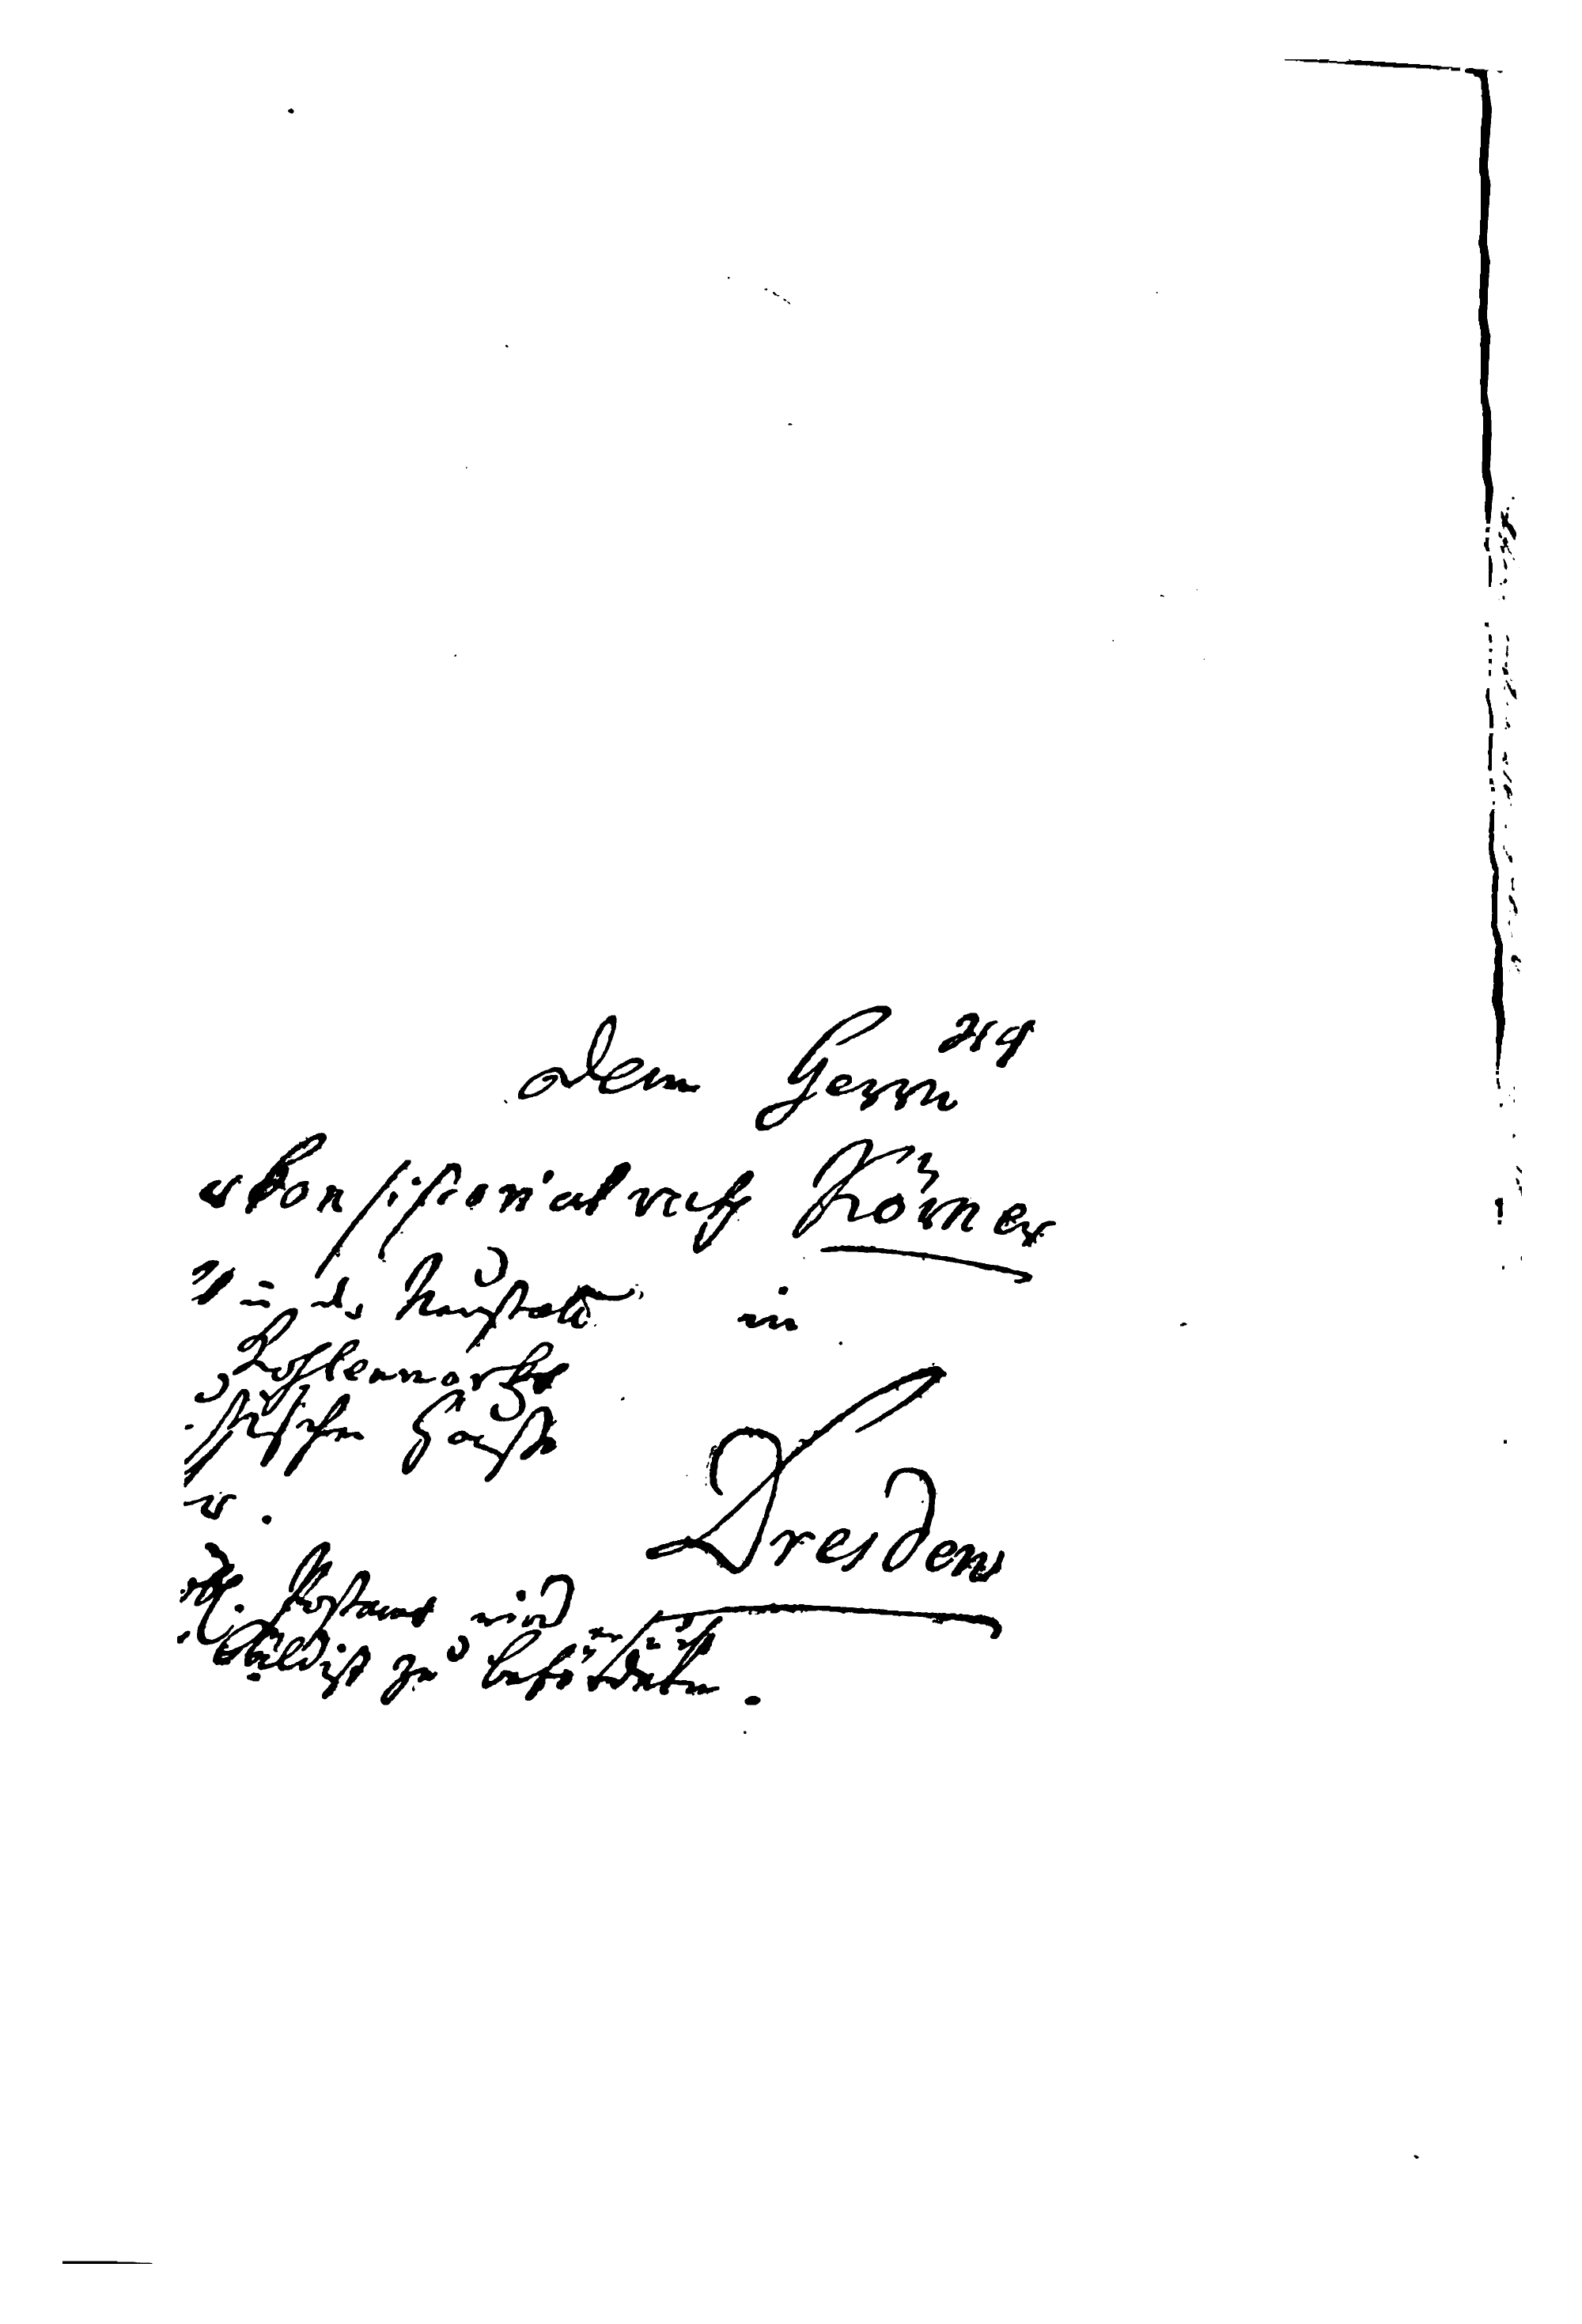 219
Dem Herrn
Konsistorialrath Körner
in der Neustadt in
Kohlenmarkt
schen Hause
Dresden
Postamt wird
zu